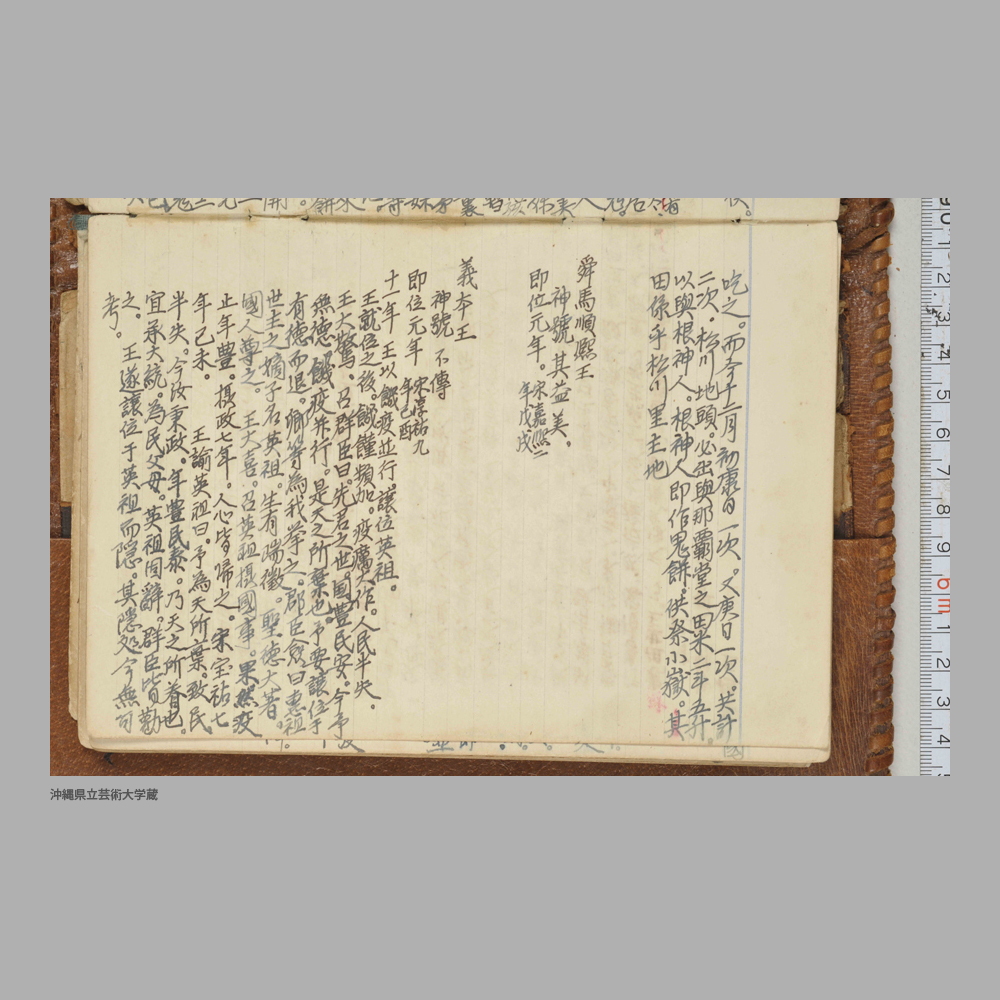 吃之。而今十二月初庚日一次。又庚日一次。共計
二次。松川地頭。必出與那覇堂之田米二斗五升。
以與根神人。根神人即作鬼餅。供祭小嶽。其
田係乎松川里主地
舜馬順熙王
神號其益美。
即位元年。宋嘉熙二年戊戌
義本王
神號不傳
即位元年 宋淳祐九年己酉
十一年 王以饑疫並行。讓位英祖。
王就位之後。饑饉頻加。疫癘大作。人民半失。
王大驚。召群臣曰。先君之世。国豊民安。今予
無德。饑疫并行。是天之所棄也。予要讓位于
有德而退。卿等為我挙之。郡臣僉曰惠祖
世主之嫡子名英祖。生有瑞徵。聖德大著。
國人尊之。 王大喜。召英祖摂國事。果然疫
止年豊。摂政七年。人心皆帰之。宋宝祐七
年己未。 王諭英祖曰。予為天所棄。致民
半失。今汝秉政。年豊民泰。乃天之所眷也。
宜承大統。為民父母。英祖固辭。群臣皆勸
之。王遂讓位于英祖而隠。其隠処今無可
考。
沖縄県立芸術大学蔵